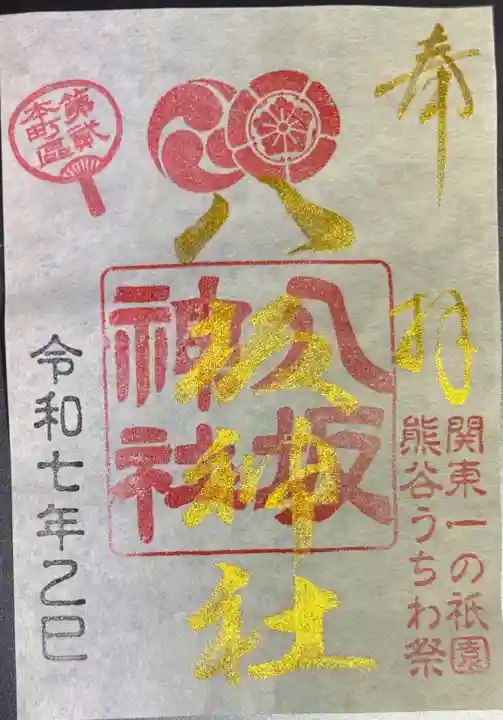 奉拝
関東一の祇園
熊谷うちわ祭
八坂神社
八坂
神社
第貳
本町區
令和七年乙巳